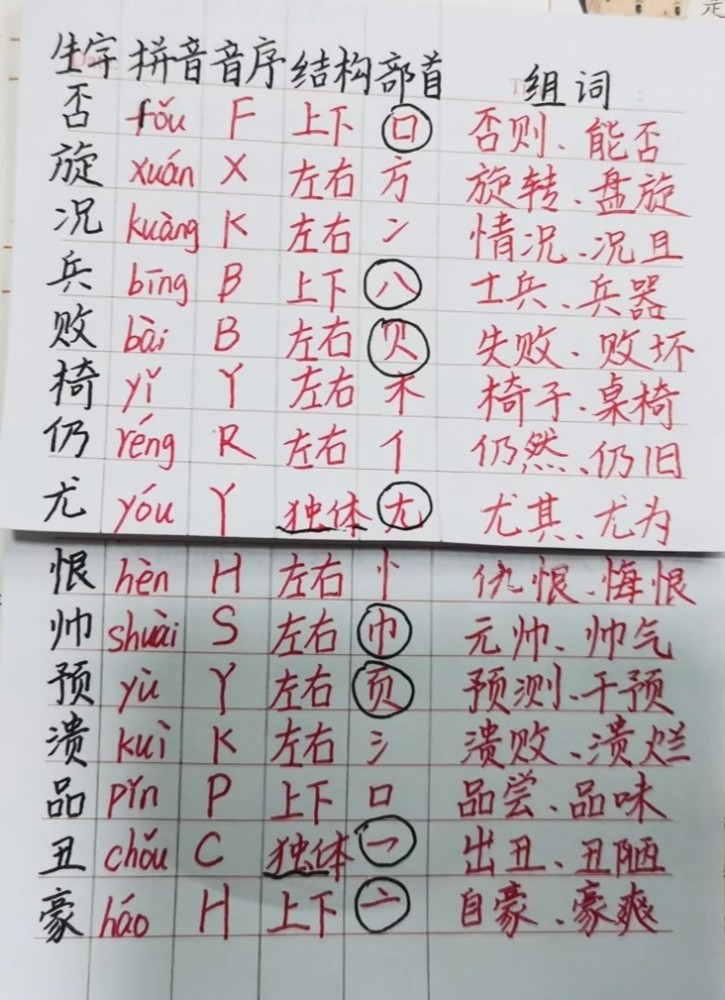 生字 拼音 音序 结构 部首 组词
否 fǒu F 上下 口 否则、能否
旋 xuán X 左右 方 旋转、盘旋
况 kuàng K 左右 冫 情况、况且
兵 bīng B 上下 八 士兵、兵器
败 bài B 左右 贝 失败、败坏
椅 yǐ Y 左右 木 椅子、桌椅
仍 réng R 左右 亻 仍然、仍旧
尤 yóu Y 独体 尢 尤其、尤为
恨 hèn H 左右 忄 仇恨、悔恨
帅 shuài S 左右 巾 元帅、帅气
预 yù Y 左右 页 预测、干预
溃 kuì K 左右 氵 溃败、溃烂
品 pǐn P 上下 口 品尝、品味
丑 chǒu C 独体 一 出丑、丑陋
豪 háo H 上下 亠 自豪、豪爽